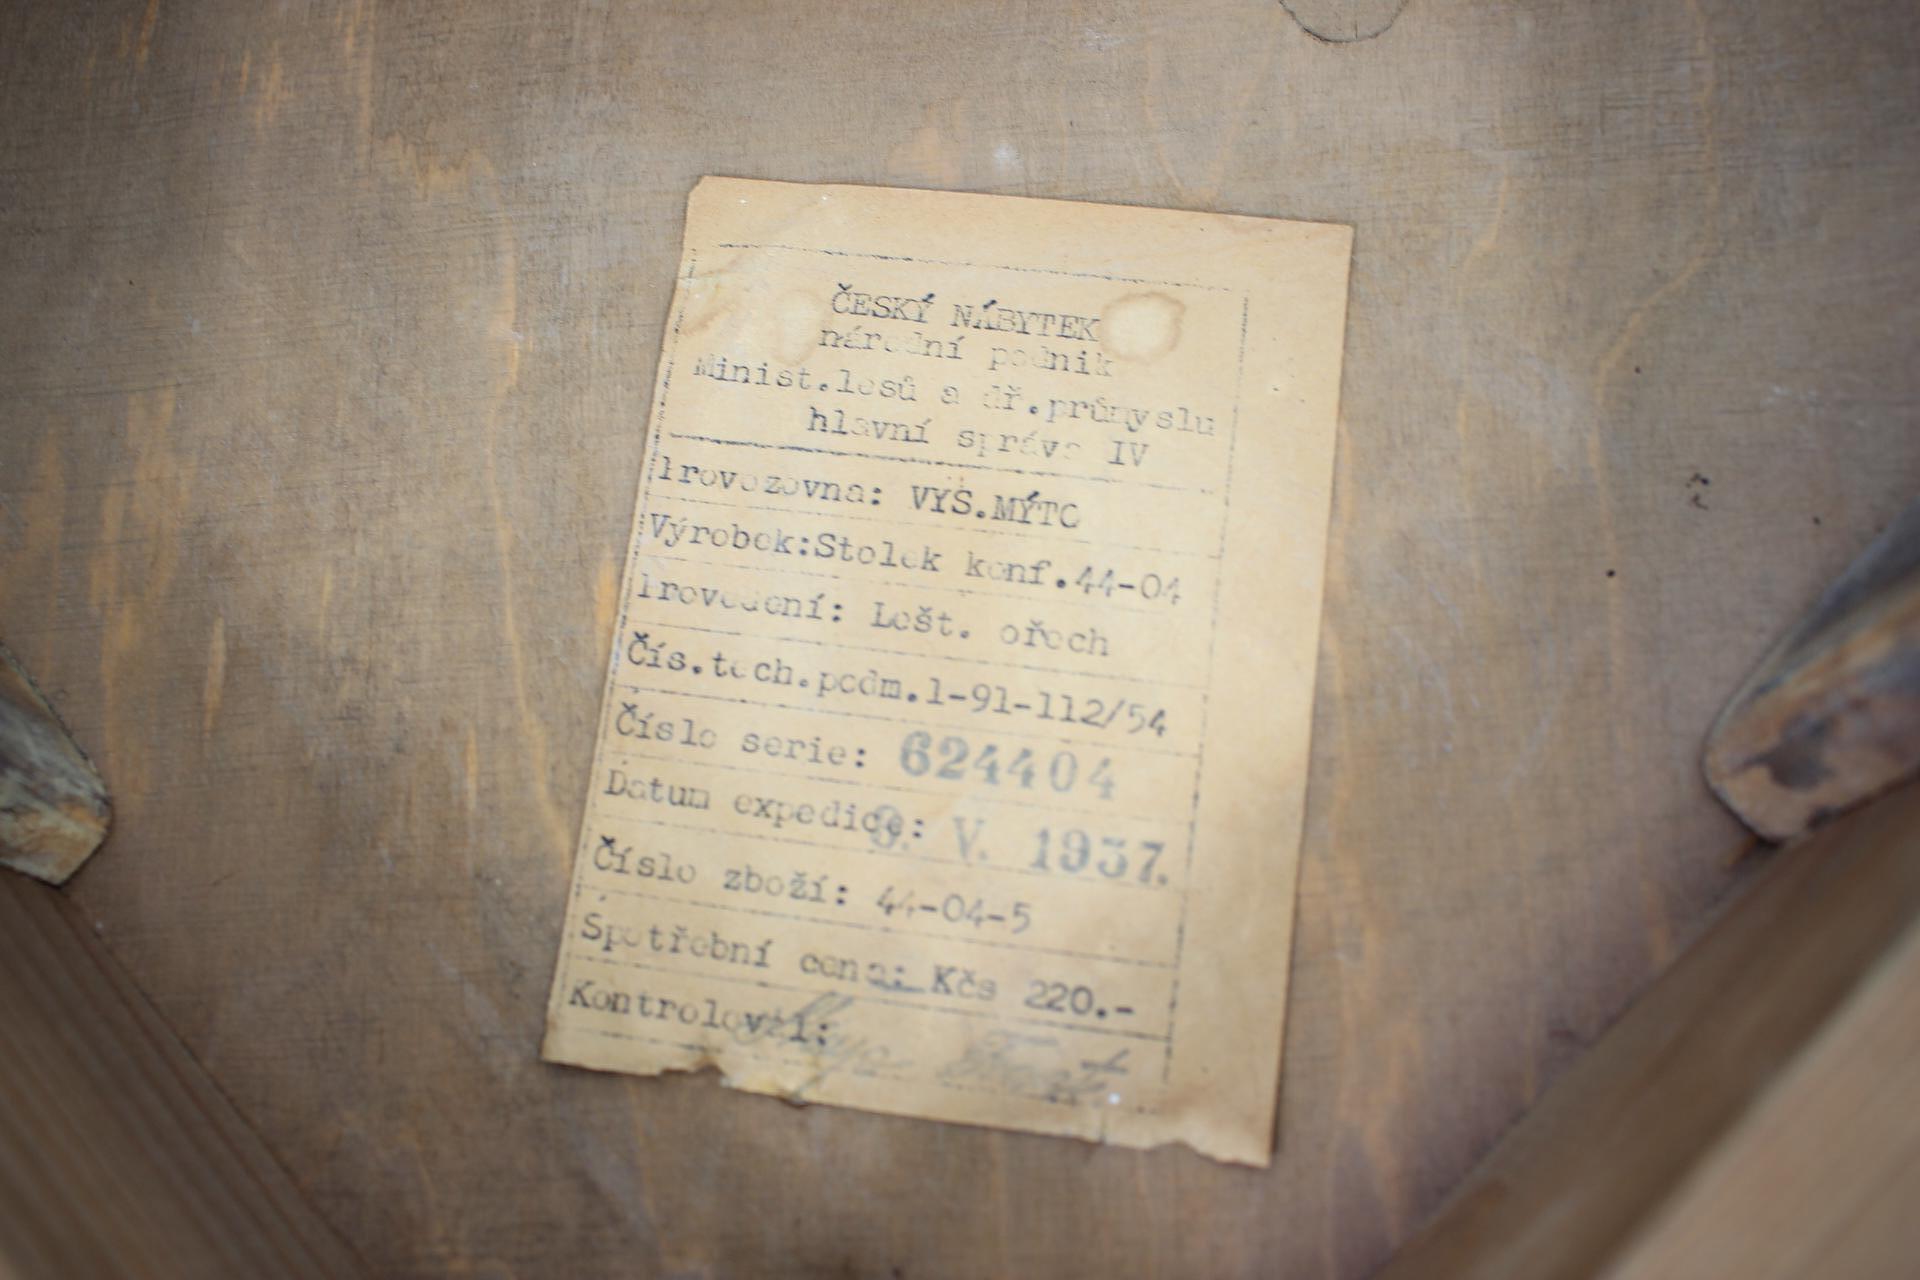 ČESKÝ NÁBYTEK
národní podnik
Minist.lesů a dř.průmyslu
hlavní správa IV
Provozovna: VYS.MÝTO
Výrobek:Stolek konf.44-04
Provedení: Lešt. ořech
Čís.tech.podm.1-91-112/54
Číslo serie: 624404
Datum expedice: 9. V. 1957.
Číslo zboží: 44-04-5
Spotřební cena: Kčs 220.-
Kontroloval: